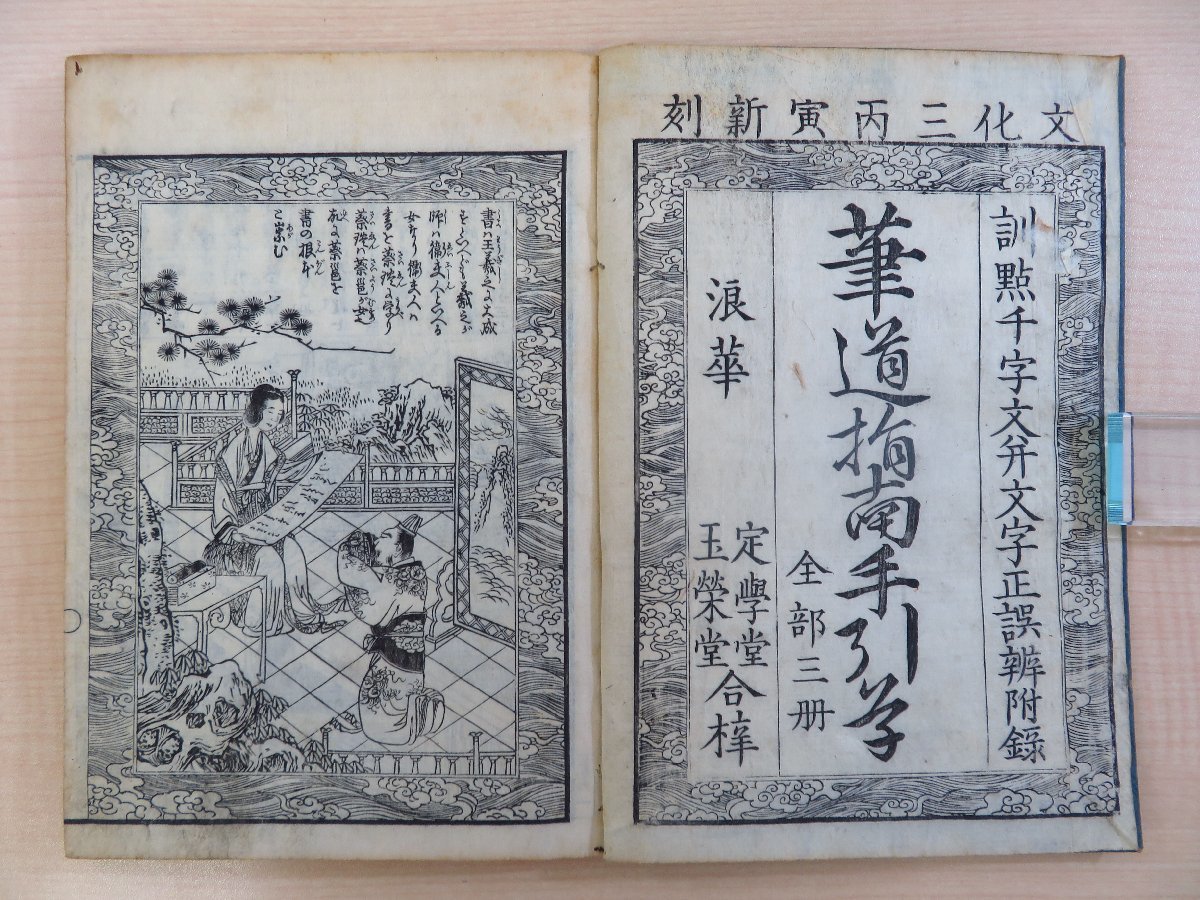 文化三丙寅新刻
訓點千字文并文字正誤辨附錄
筆道指南手引草
全部三册
浪華
定學堂
玉榮堂
合梓
書ハ王羲之に大成
すといへども羲之が
師ハ衛夫人といへる
女なり衛夫人ハ
書を蔡琰に学り
蔡琰ハ蔡邕が女也
故に蔡邕を
書の根本
と崇む